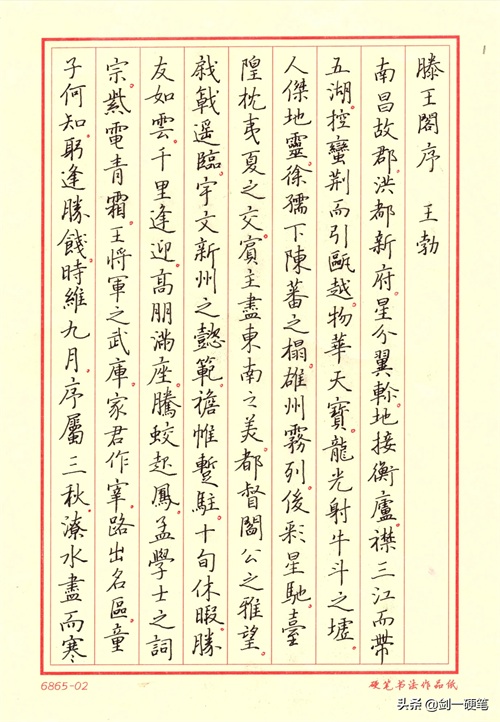 滕王閣序 王勃
南昌故郡。洪都新府。星分翼軫。地接衡廬。襟三江而帶
五湖。控蠻荆而引甌越。物華天寶。龍光射牛斗之墟。
人傑地靈。徐孺下陳蕃之榻。雄州霧列。俊彩星馳。臺
隍枕夷夏之交。賓主盡東南之美。都督閻公之雅望。
棨戟遥臨。宇文新州之懿範。襜帷暫駐。十旬休暇。勝
友如雲。千里逢迎。高朋滿座。騰蛟起鳳。孟學士之詞
宗。紫電青霜。王將軍之武庫。家君作宰。路出名區。童
子何知。躬逢勝餞。時維九月。序屬三秋。潦水盡而寒
1
6865-02
硬笔书法作品纸
头条 @剑一硬笔